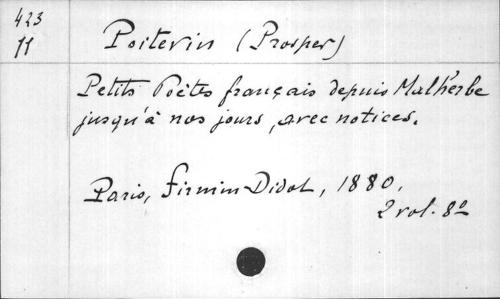 423
11
Poitevin (Prosper)
Petits Poètes français depuis Malherbe
jusqu'à nos jours, avec notices.
Paris, Firmin Didot, 1880,
2 vol. 8º